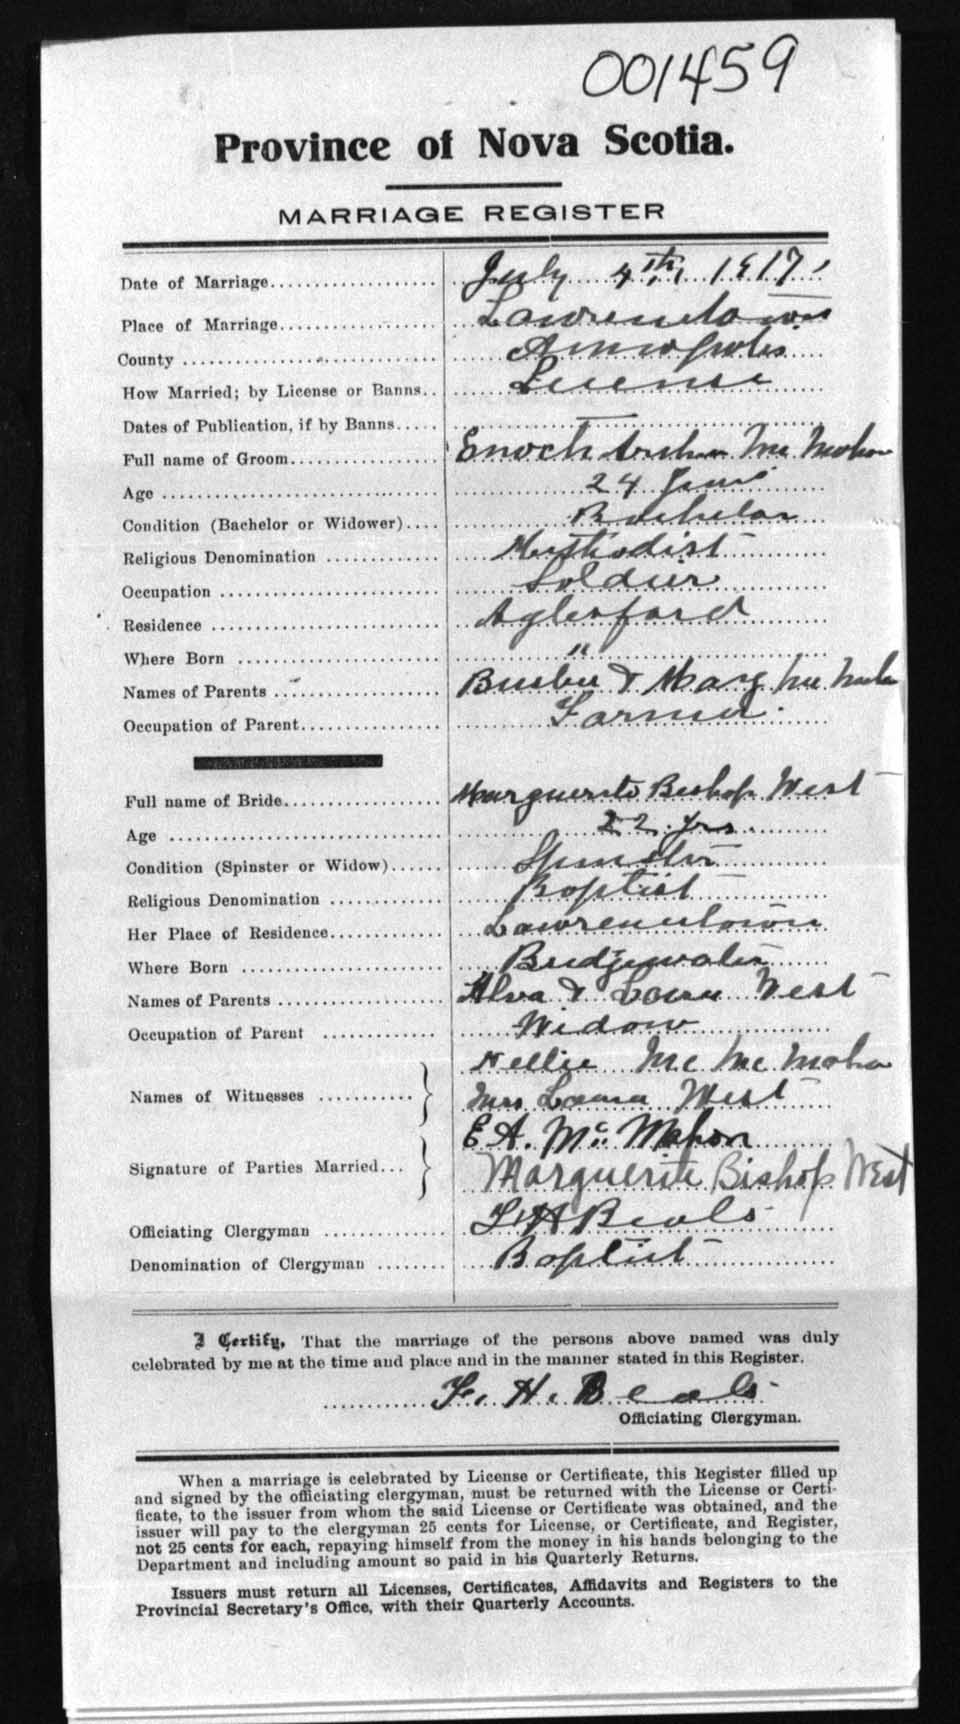 001459
Province of Nova Scotia.
MARRIAGE REGISTER
Date of Marriage July 4th, 1917,
Place of Marriage Lawrencetown
County Annapolis
How Married; by License or Banns License
Dates of Publication, if by Banns —
Full name of Groom Enoch Arthur Mc Mahon
Age 24 Years
Condition (Bachelor or Widower) Bachelor
Religious Denomination Methodist
Occupation Soldier
Residence Aylesford
Where Born "
Names of Parents & Mc
Occupation of Parent Farmer.
Full name of Bride Marguerite Bishop West
Age 22 yrs.
Condition (Spinster or Widow) Spinster
Religious Denomination Baptist
Her Place of Residence Lawrencetown
Where Born Bridgewater
Names of Parents Alva & Laura West
Occupation of Parent Widow
Nellie Mc Mahon
Names of Witnesses Mrs Laura West
E A. Mc Mahon
Signature of Parties Married Marguerite Bishop West
Officiating Clergyman F H Beals
Denomination of Clergyman Baptist
I Certify, That the marriage of the persons above named was duly
celebrated by me at the time and place and in the manner stated in this Register.
F. H. Beals
Officiating Clergyman.
When a marriage is celebrated by License or Certificate, this Register filled up
and signed by the officiating clergyman, must be returned with the License or Certi-
ficate, to the issuer from whom the said License or Certificate was obtained, and the
issuer will pay to the clergyman 25 cents for License, or Certificate, and Register,
not 25 cents for each, repaying himself from the money in his hands belonging to the
Department and including amount so paid in his Quarterly Returns.
Issuers must return all Licenses, Certificates, Affidavits and Registers to the
Provincial Secretary's Office, with their Quarterly Accounts.